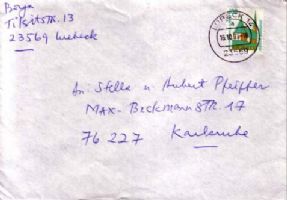 Borga
Tilsitstr. 13
23569 Luebeck
LÜBECK
23569
An Stella u. Hubert Pfeiffer
MAX-BeckmannSTR. 17
76 227 Karlsruhe